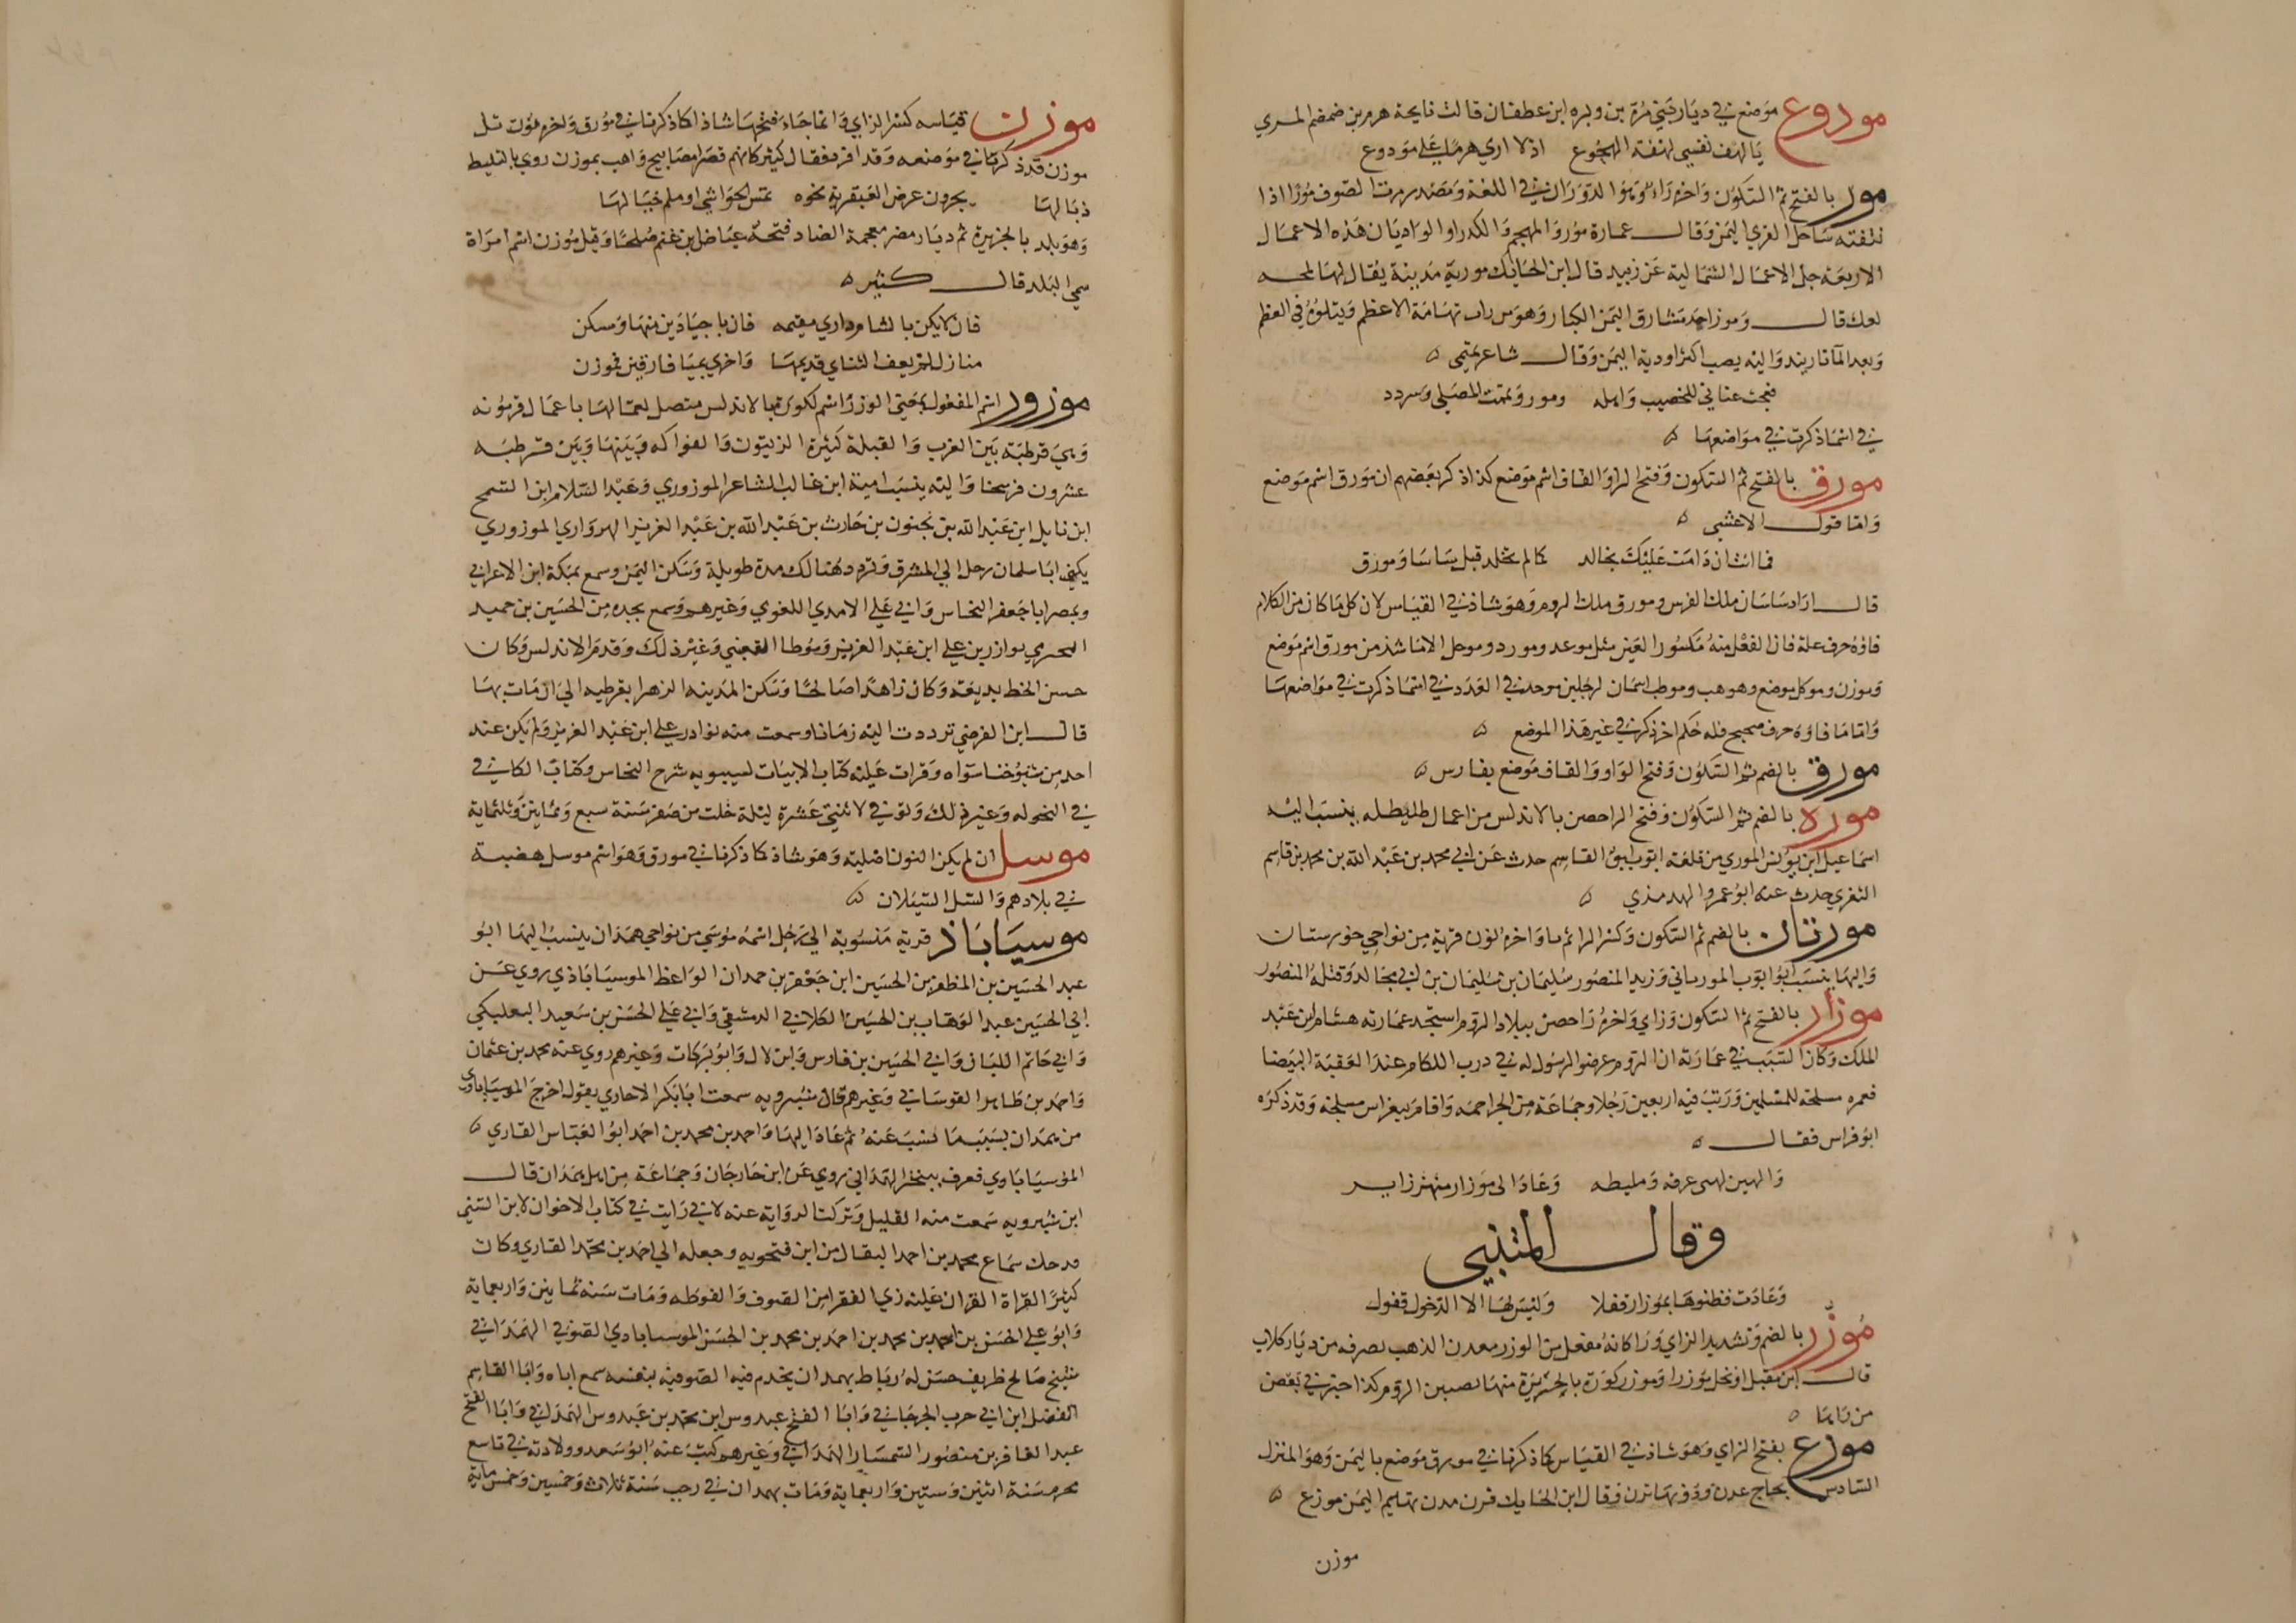 مودوع موضع في ديار بني مرة بن وبره ابن غطفان قالت نايحة هرم بن ضمضم المري
يا لهف نفسي لهفة الهجوع اذ لا اري هرما علي مودوع
مور بالفتح ثم السكون واخره راء وهو الدوران في اللغة ومصدر مرت الصوف مورا اذا
نتفته ساحل لقري اليمن وقال عمارة مور والمهجم والكدرا والواديان هذه الاعمال
الاربعة جل الاعمال الشمالية عن زبيد قال ابن الحايك مورية مدينة يقال لها لمحه
لعك قال ومور احد مشارق اليمن الكبار وهو من راب تهامة الاعظم ويتلوه في العظم
وبعد الماتا ربيد واليه يصب اكثر اودية اليمن وقال شاعر يمني ه
فعجت عناني للخصيب واهله ومور ويممت المصلي وسردد
في اسما ذكرت في مواضعها ه
مورق بالفتح ثم السكون وفتح الرا والقاف اسم موضع كذا ذكر بعضهم ان مورق اسم موضع
واما قول الاعشي ه
فما انت ان دامت عليك بخالد كما لم يخلد قبل ساسا ومورق
قال اراد ساسان ملك الفرس ومورق ملك الروم وهو شاذ في القياس لان كل ما كان من الكلام
فاوه حرف علة فان الفعل منه مكسور العين مثل موعد ومورد وموحل الا ما شذ من مورق اسم موضع
وموزن وموكل موضع وهوهب وموظب اسمان لرجلين موحد في العدد في اسما ذكرت في مواضعها
واما ما فاوه حرف صحيح فله حكم اخر ذكر في غير هذا الموضع ه
مورق بالضم ثم السكون وفتح الواو والقاف موضع بفارس ه
موره بالضم ثم السكون وفتح الرا حصن بالاندلس من اعمال طليطله ينسب اليه
اسماعيل ابن يونس الموري من قلعة ايوب ابو القاسم حدث عن ابي محمد بن عبد الله بن محمد بن قاسم
الثغري حدث عنه ابو عمرو الهرمذي ه
موريان بالضم ثم السكون وكسر الرا ثم يا واخره نون قرية من نواحي خورستان
واليها ينسب ابو ايوب المورياني وزير المنصور سليمان بن سليمان بن ابي مجالد وقتله المنصور
موزار بالفتح ثم السكون وزاي واخره را حصن ببلاد الروم استجد عمارته هشام ابن عبد
الملك وكان السبب في عمارته ان الروم عرضوا لرسول له في درب اللكام عند العقبة البيضا
فعمره مسلحة للمسلمين ورتب فيه اربعين رجلا وجماعة من الجراجمه واقام ببغراس مسلحة وقد ذكره
ابو فراس فقال ه
والهين لهبي عرقه وملطيه وعاد الى موزار منهن زاير
وقال المتنبي
وعادت فظنوها بموزار قفلا وليس لها الا الدخول قفول
موزر بالضم وتشديد الزاي ورا كانه مفعل من الوزر معدن الذهب بصرفه من ديار كلاب
قال ابن مقبل او نخل موزرا وموزر كورة بالجزيرة منها نصيبين الروم كذا خبرني بعض
من راها ه
موزع بفتح الزاي وهو شاذ في القياس كما ذكرنا في مورق موضع باليمن وهو المنزل
السادس بحاج عدن ودونها ترن وقال ابن الحايك قرن مدن تهايم اليمن موزع ه
موزن
موزن قياسه كسر الزاي وانما جاء فتحها شاذا كما ذكرنا في مورق واخره نون تل
موزن قد ذكرتها في موضعه وقد افرد فقال كثير كانهم قصرا مصابيح واهب بموزن روي بالسليط
ذبالها يجرون عرض العبقرية نحوه تمس الحواشي او ملم خيالها
وهو بلد بالجزيرة ثم ديار مضر معجمة الضاد فتحه عياض ابن غنم صلحا وقيل موزن اسم امراة
سمي البلد قال كثير ه
فان لا يكن بالشام داري مقيمه فان باجيادين منها ومسكن
منازل لم يعف الثناي قديمها واخري بميا فارقين فموزن
موزور اسم المفعول يحتي الوزر اسم لكورة بالاندلس متصل اعمالها باعمال قرمونه
وهي قرطبة بين الغرب والقبلة كثيرة الزيتون والفواكه وبينها وبين قرطبه
عشرون فرسخا واليه ينسب امية ابن غالب الشاعر الموزوري وعبد السلام ابن السمح
ابن نايل ابن عبد الله بن يجنون بن حارث بن عبد الله بن عبد العزيز الهرواري الموزوري
يكنى ابا سلمان رحل الي المشرق وتردد هنالك مدة طويلة وسكن اليمن وسمع بمكة ابن الاعرابي
وبمصر ابا جعفر النحاس وابي علي الامدي اللغوي وغيرهم وسمع بجده من الحسين بن حميد
البحري نوادر بن علي ابن عبد العزيز وموطا القعنبي وغير ذلك وقدم الاندلس وكان
حسن الخط بديعه وكان زاهدا صالحا وسكن المدينه الزهرا بقرطبه الي ان مات بها
قال ابن الفرضي ترددت اليه زمانا وسمعت منه نوادر علي ابن عبد العزيز ولم يكن عند
احد من شيوخنا سواه وقرات عليه كتاب الابيات لسيبويه شرح النحاس وكتاب الكافي
في النحو له وغير ذلك وتوفي لاثنتي عشرة ليلة خلت من صفر سنة سبع وثمانين وثلثماية
موسل ان لم يكن النون اصلية وهو شاذ كما ذكرنا في مورق وهو اسم موسل هضبة
في بلادهم والسل السيلان ه
موسياباذ قرية منسوبة الي رجل اسمه موسي من نواحي همدان ينسب اليها ابو
عبد الحسين بن المظفر بن الحسين ابن جعفر بن حمدان الواعظ الموسياباذي روي عن
ابي الحسين عبد الوهاب بن الحسين الكلابي الدمشقي وابي علي الحسن بن سعيد البعلبكي
وابي حاتم اللبان وابي الحسين بن فارس وابن لال وابو بركات وغيرهم روي عنه محمد بن عثمان
واحمد بن طاهر القومساني وغيرهم قال شيرويه سمعت ابا بكر الاخاري يقول اخرج الموسياباذي
من همدان بسبب ما نسب عنه ثم عاد اليها واحمد بن محمد بن احمد ابو العباس القاري ه
الموسياباوي فعرف ببنخز الهمداني روي عن ابن جارجان وجماعة من اهل همدان قال
ابن شيرويه سمعت منه القليل وتركت الرواية عنه لاني رايت في كتاب الاخوان لابن السني
قد حك سماع محمد بن احمد البقال من ابن فتحويه وجعله الي احمد بن محمد القاري وكان
كثير القراة القران عليه زي الفقرا من الصوف والفوطه ومات سنه ثمانين واربعماية
وابو علي الحسن بن احمد بن محمد بن احمد بن محمد بن الحسن الموسيابادي الصوفي الهمداني
شيخ صالح ظريف حسن له رباط بهمدان يخدم فيه الصوفيه بنفسه سمع اباه وابا القاسم
الفضل ابن ابي حرب الجرجاني وابا الفتح عبدوس ابن محمد بن عبدوس الهمداني وابا الفتح
عبد الغافر بن منصور السمسار الهمداني وغيرهم كتب عنه ابو سعد وولادته في تاسع
محرم سنة اثنين وستين واربعماية ومات بهمدان في رجب سنة ثلاث وخمسين وخمس ماية